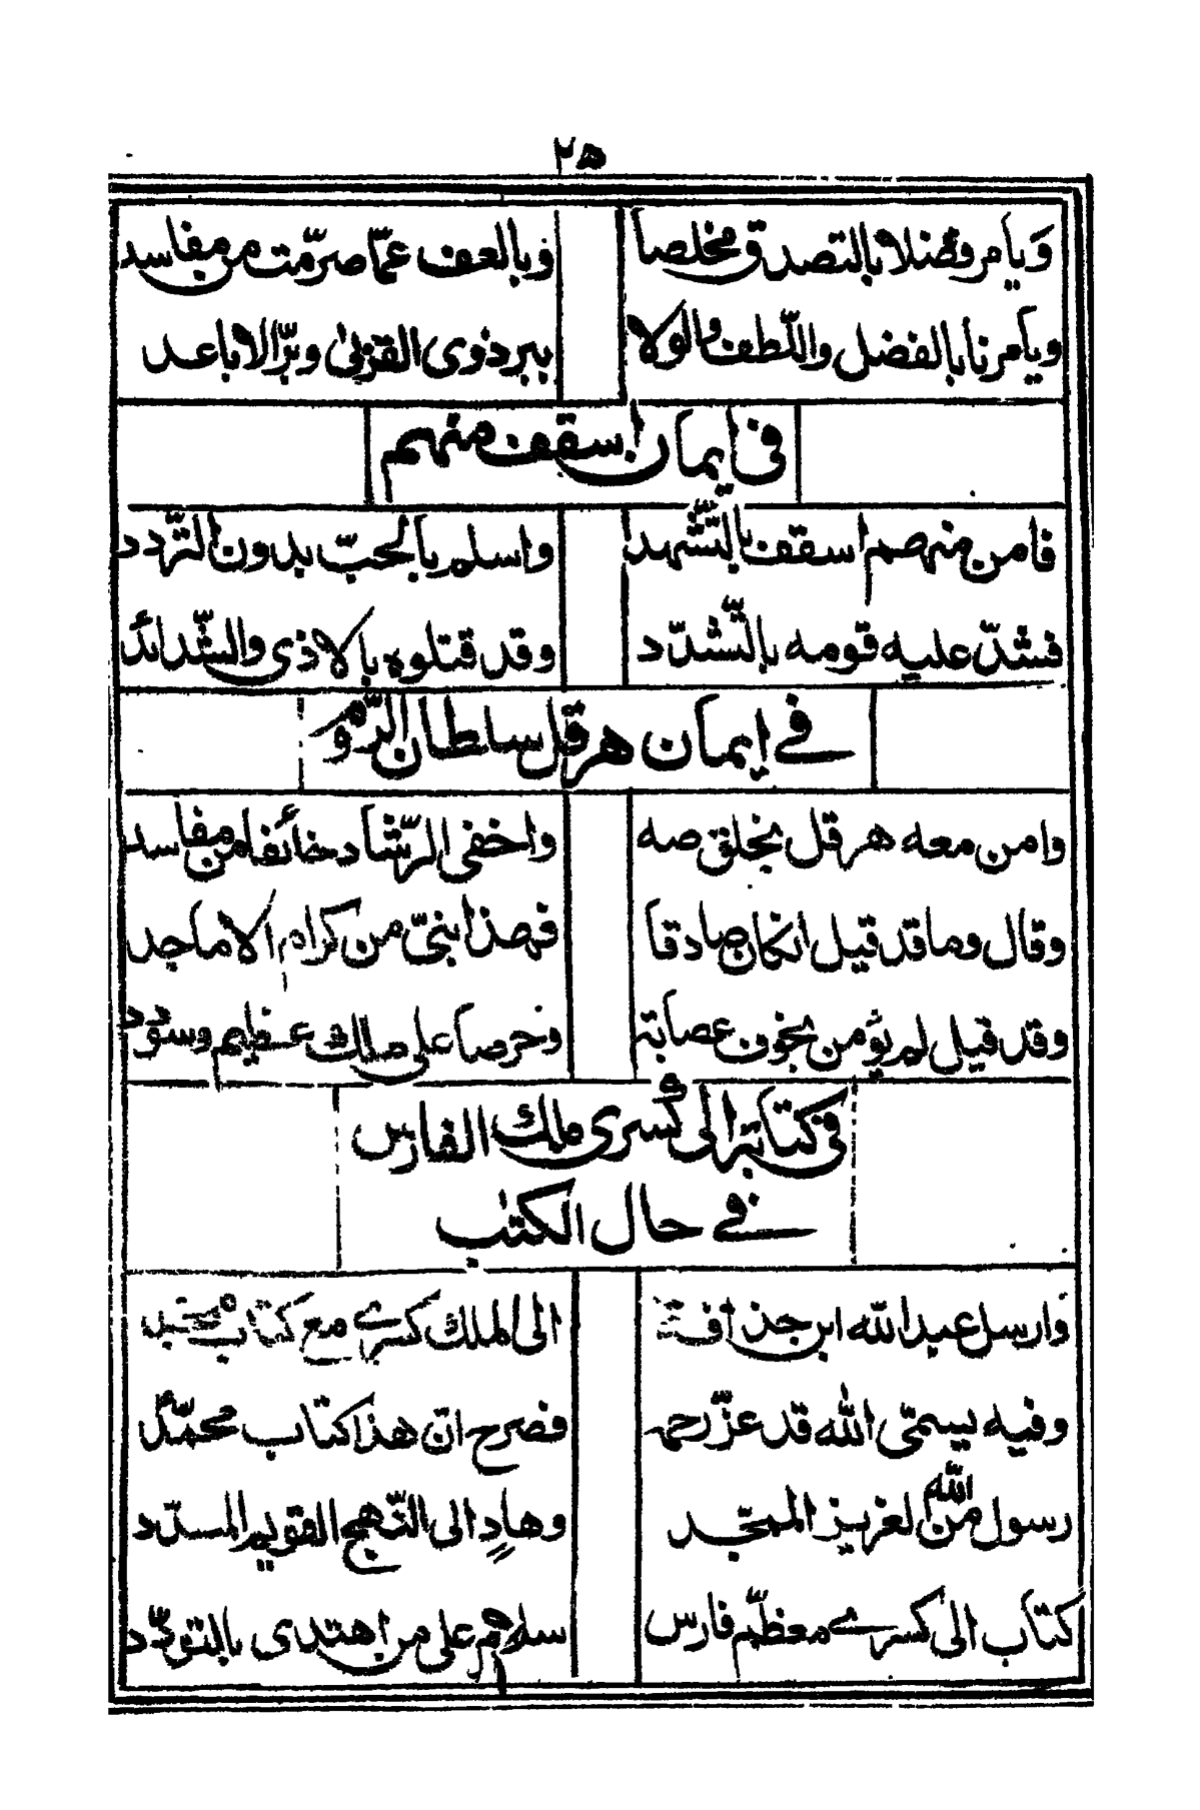 ٢٥
وَيامر فضلا بالتصدق مخلصا وبالعف عمّا صرمّت من مفاسد
ويامرنا بالفضل واللّطف والولا ببر ذوى القربىٰ وبرّ الاباعد
فى ايمان اسقف منهم
فامن منهم اسقف بالتّشهد واسلم بالحبّ بدون التّردد
فشدّ عليه قومه بالتّشدّد وقد قتلوه بالاذى والشّدائد
فے ايمان هرقل سلطان الرّوم
وامن معه هرقل بخلق صه واخفى الرّشاد خائفا من مفاسد
وقال وما قد قيل انكان صادقا فهذا نبىّ من كرام الاماجد
وقد قيل لم يؤمن بخوف عصابة وحرصا على ملك عظيم وسودد
فى كتابة الى كسرى ملك الفارس
فے حال الكتب
وارسل عبد الله ابن الى الملك كسرے مع كتاب
وفيه يسمّى الله قد عزّ رحمه فصرح انّ هذا كتاب محمّد
رسول من الله لعزيز الممجّد وهادٍ الى النّهج القويم المسدّد
كتاب الى كسرے معظّم فارس سلام على من اهتدى بالتودّد